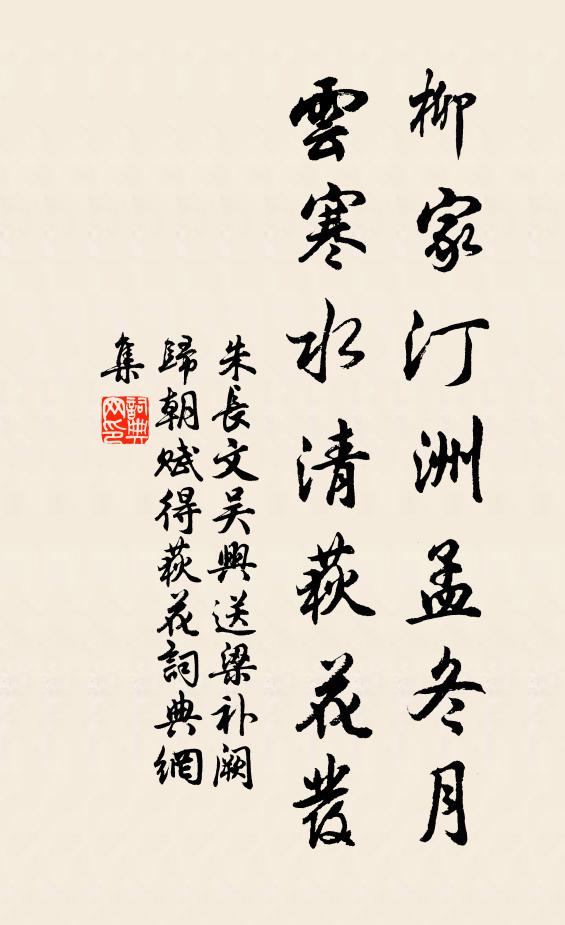 柳家汀洲孟冬月
雲寒水清荻花發
朱長文吴興送梁补阙
歸朝赋得荻花詞典網
集
詞典
网印